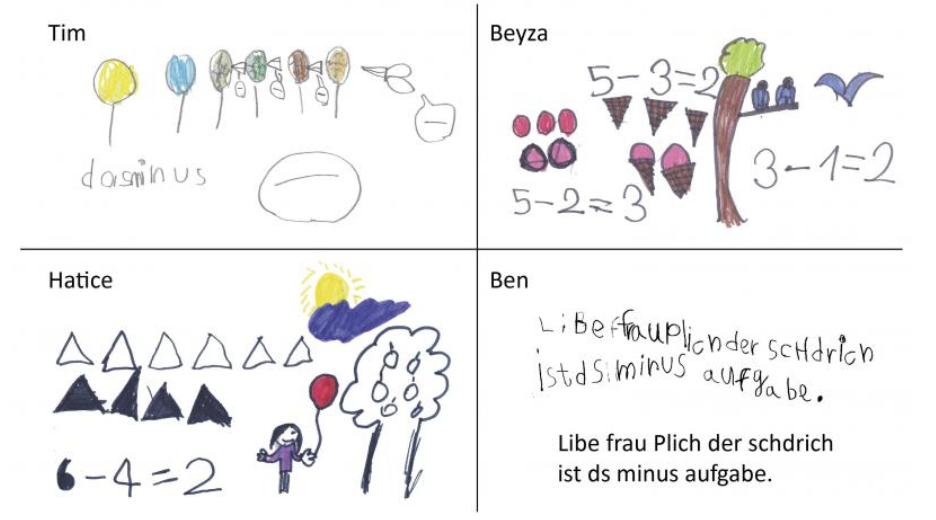 Tim
dasminus
Beyza
5-3=2
3-1=2
5-2=3
Hatice
6-4=2
Ben
LiBe frauplichder scHdrich
istdsiminus aufgabe.
Libe frau Plich der schdrich
ist ds minus aufgabe.